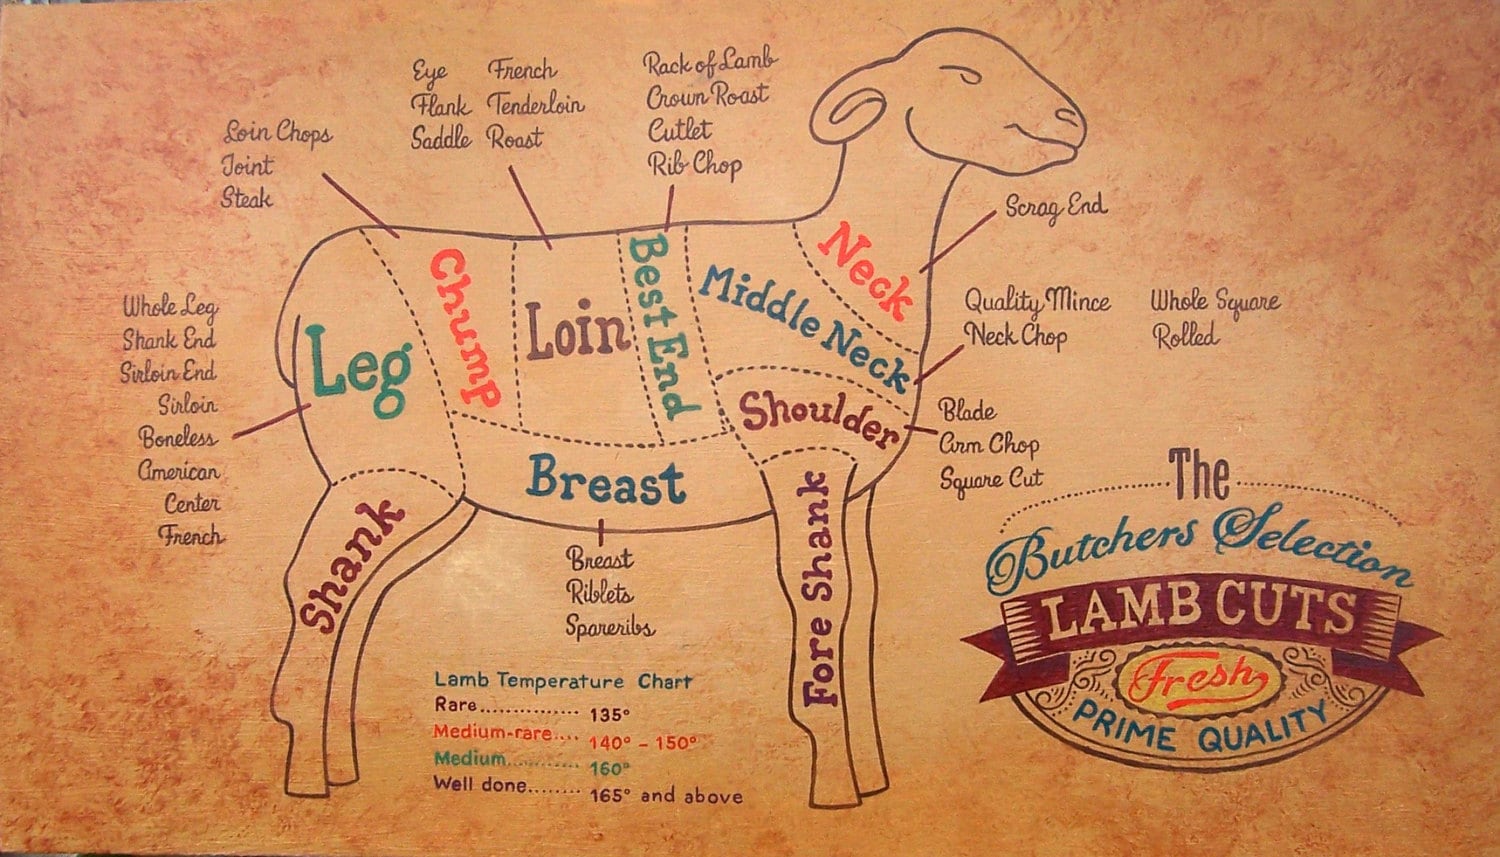 Eye French
Flank Tenderloin
Saddle Roast
Rack of Lamb
Crown Roast
Cutlet
Rib Chop
Loin Chops
Joint
Steak
Scrag End
Neck
Best End
Chump
Middle Neck
Loin
Leg
Shoulder
Breast
Shank
Fore Shank
Quality Mince Whole Square
Neck Chop Rolled
Whole Leg
Shank End
Sirloin End
Sirloin
Boneless
American
Center
French
Blade
Arm Chop
Square Cut
Breast
Riblets
Spareribs
Lamb Temperature Chart
Rare............... 135°
Medium-rare.... 140° - 150°
Medium............ 160°
Well done........ 165° and above
The
Butchers Selection
LAMB CUTS
Fresh
PRIME QUALITY